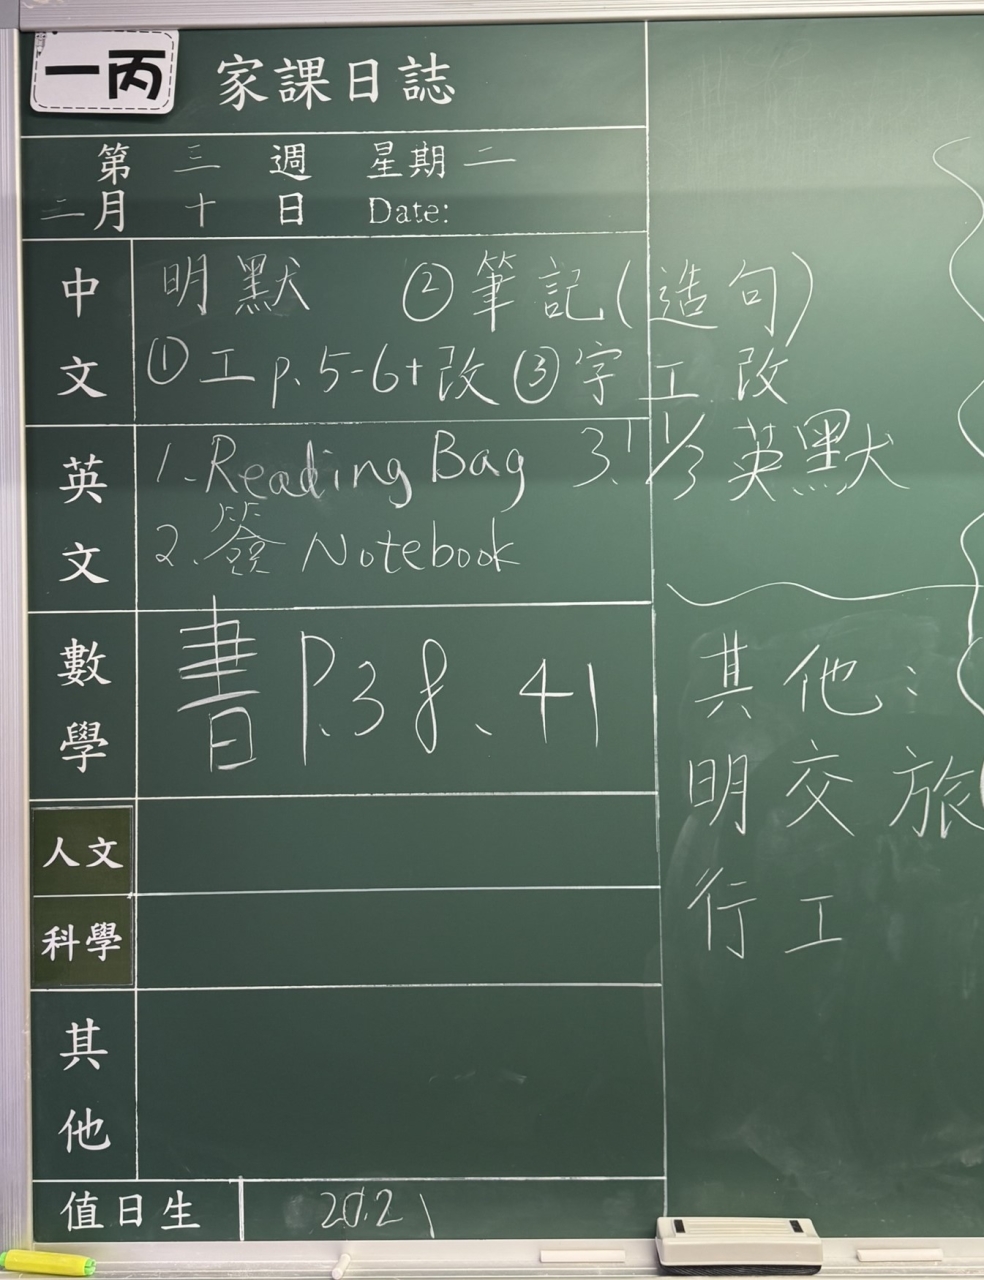 一丙 家課日誌
第 三 週 星期 二
二月 十 日 Date:
中文
明默 ②筆記(造句)
①工p.5-6+改 ③字工改
英文
1.Reading Bag 3. 1/3 英默
2.簽 Notebook
數學
書 P.38、41
人文
科學
其他
其他：
明交旅
行工
值日生 20.21